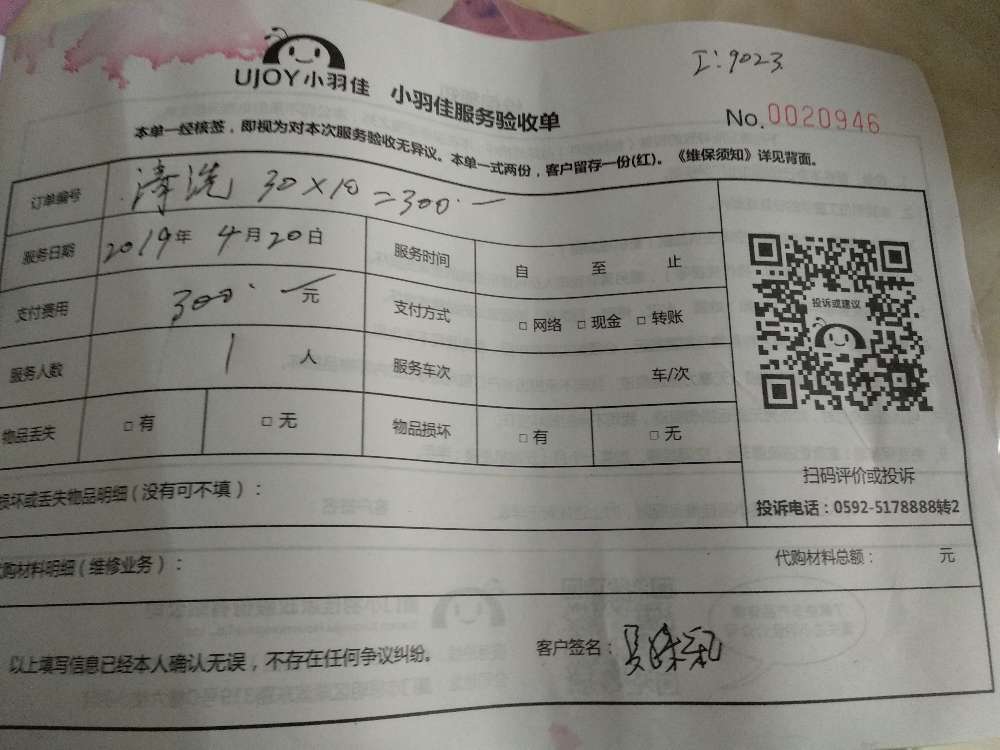 I:9023
UJOY小羽佳 小羽佳服务验收单
No.0020946
本单一经核签，即视为对本次服务验收无异议。本单一式两份，客户留存一份(红)。《维保须知》详见背面。
订单编号 清洗 30×10=300.一
服务日期 2019年 4月20日 服务时间 自 至 止
支付费用 300.一元 支付方式 □网络 □现金 □转账
服务人数 1 人 服务车次 车/次
物品丢失 □有 □无 物品损坏 □有 □无
投诉或建议
扫码评价或投诉
投诉电话：0592-5178888转2
损坏或丢失物品明细（没有可不填）：
代购材料明细（维修业务）： 代购材料总额： 元
以上填写信息已经本人确认无误，不存在任何争议纠纷。 客户签名：